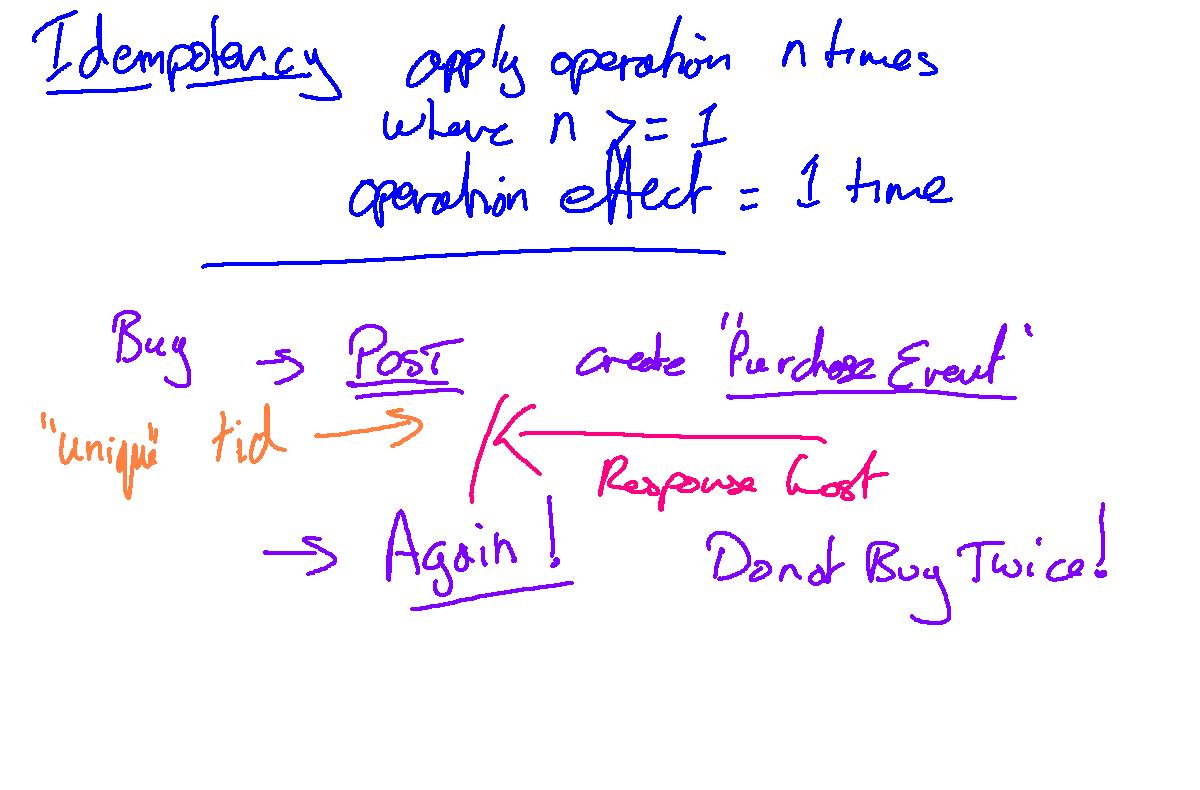 Idempotency apply operation n times
where n >= 1
operation effect = 1 time
Buy → POST create "Purchase Event"
"unique" tid → Response Lost
→ Again! Do not Buy Twice!